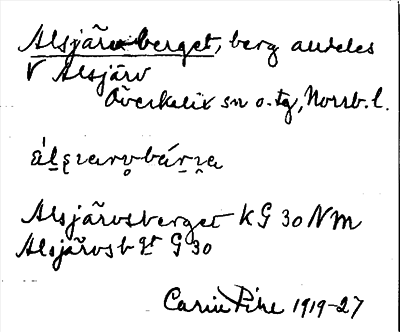 Alsjärvberget, berg alldeles
V Alsjärv
Överkalix sn o. tg, Norrb. l.
Alsjärvsberget K G 30 NM
Alsjärvsb gt G 30
Carin Pihl 1919-27